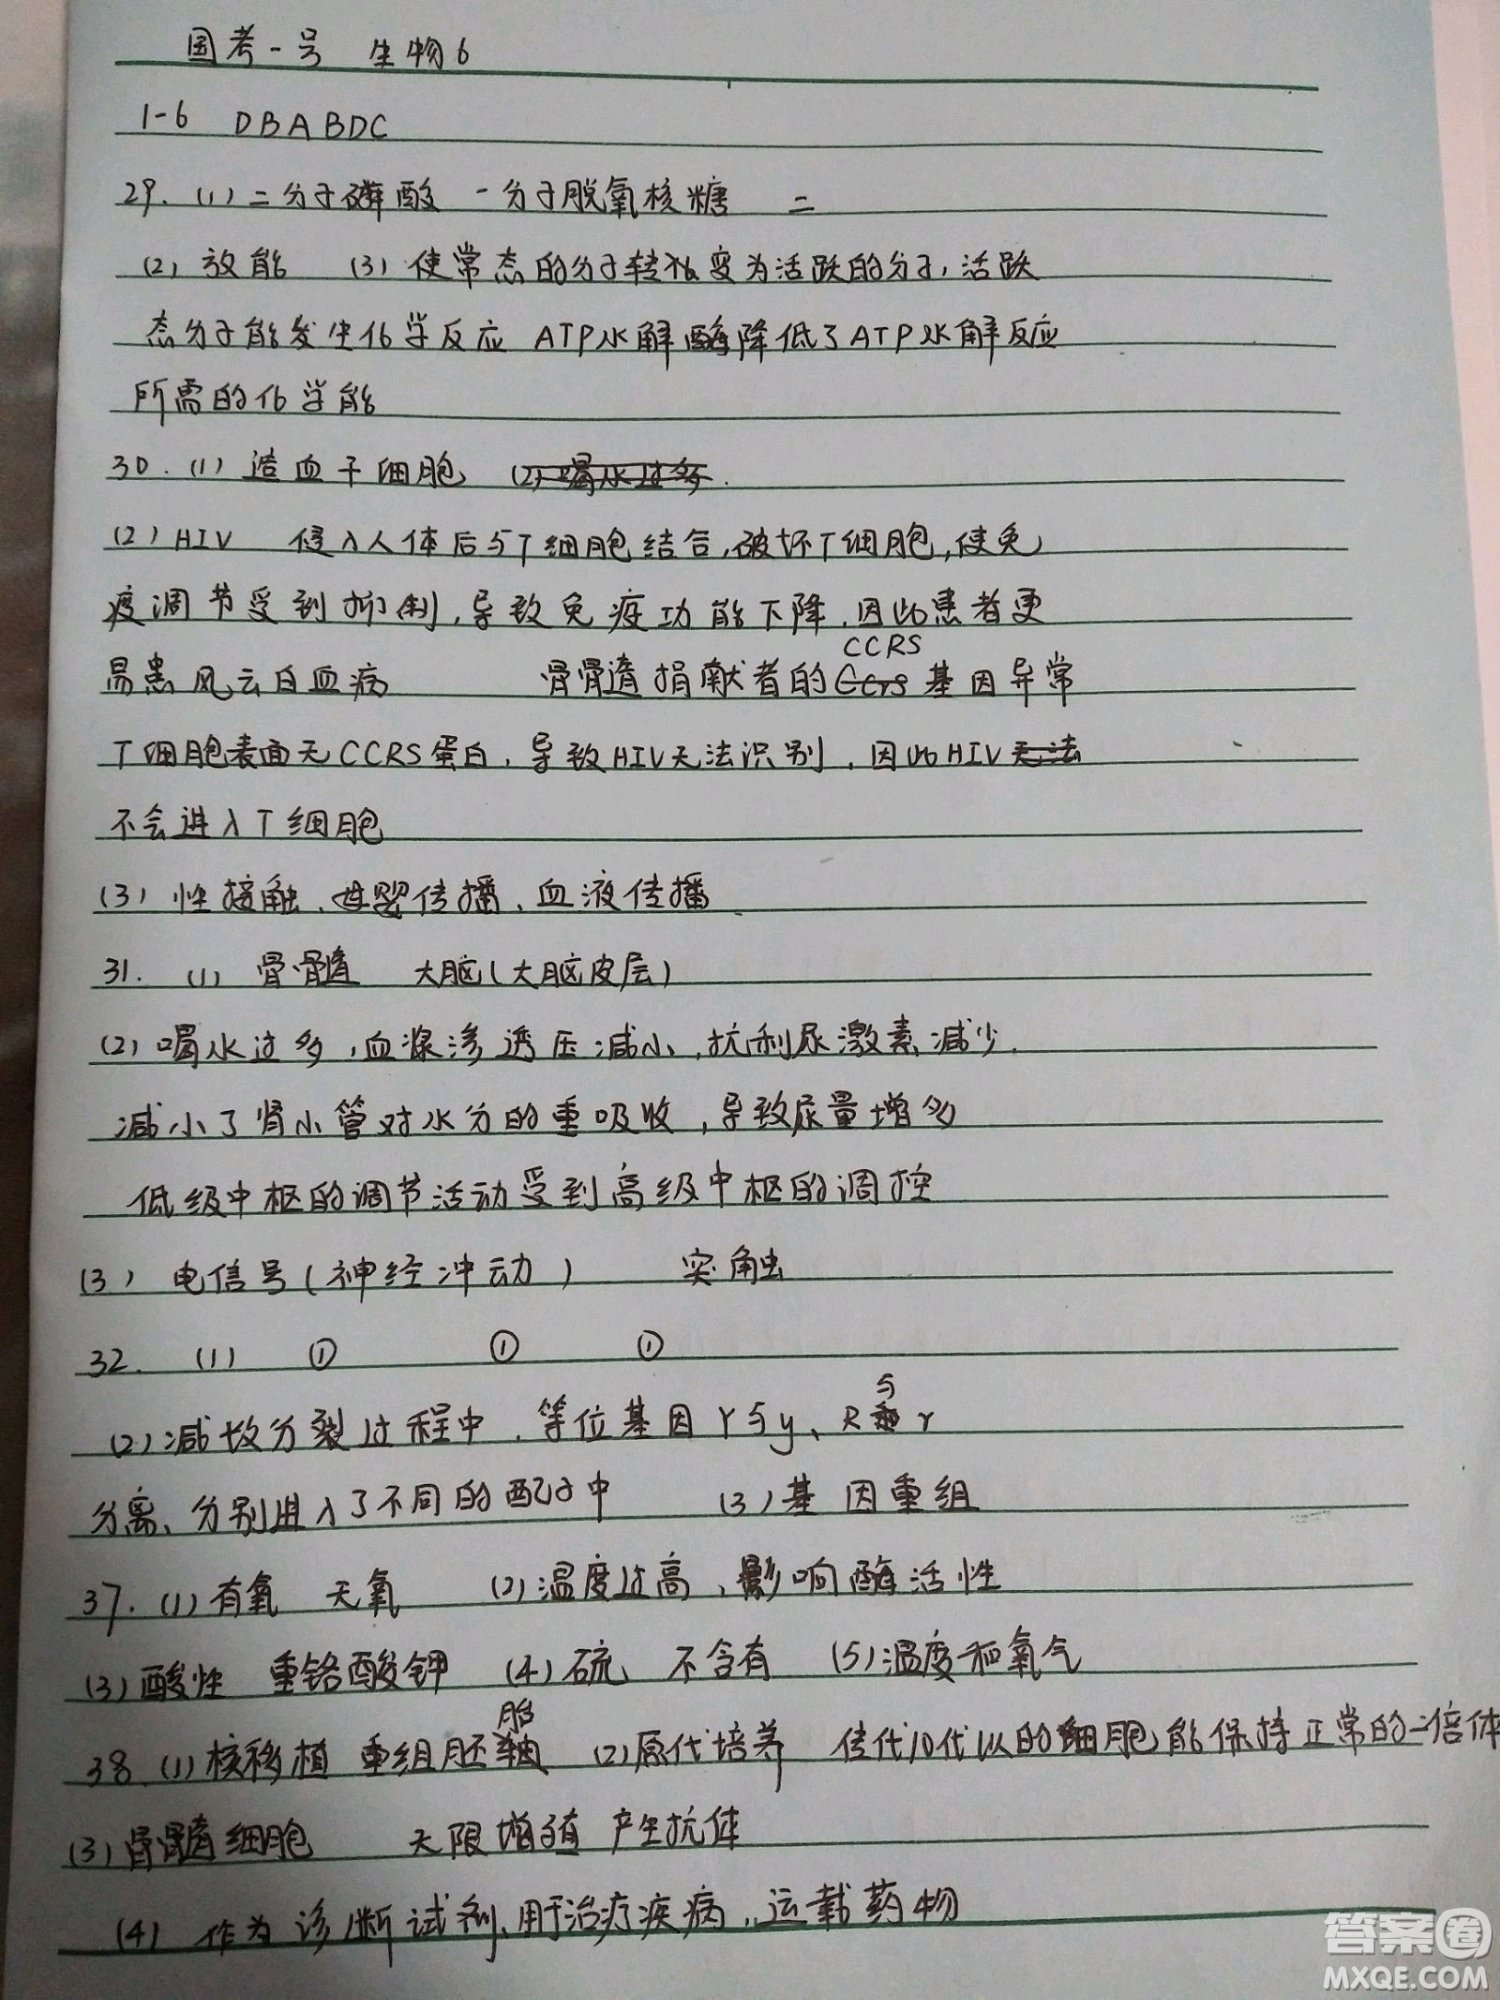 国考一号 生物6
1-6 DBABDC
29. (1) 二分子磷酸 一分子脱氧核糖 二
(2) 放能 (3) 使常态的分子转变为活跃的分子,活跃
态分子能发生化学反应 ATP水解酶降低了ATP水解反应
所需的化学能
30. (1) 造血干细胞 (2) 喝水过多.
(2) HIV 侵入人体后与T细胞结合,破坏T细胞,使免
疫调节受到抑制,导致免疫功能下降,因此患者更
易患风云白血病 骨髓捐献者的CCRS基因异常
T细胞表面无CCRS蛋白,导致HIV无法识别,因此HIV无法
不会进入T细胞
(3) 性接触、母婴传播、血液传播
31. (1) 骨髓 大脑(大脑皮层)
(2) 喝水过多,血浆渗透压减小,抗利尿激素减少.
减小了肾小管对水分的重吸收,导致尿量增多
低级中枢的调节活动受到高级中枢的调控
(3) 电信号(神经冲动) 突触
32. (1) ① ① ①
(2) 减数分裂过程中,等位基因Y与y、R与r
分离、分别进入了不同的配子中 (3) 基因重组
37. (1) 有氧 无氧 (2) 温度过高,影响酶活性
(3) 酸性 重铬酸钾 (4) 硫 不含有 (5) 温度和氧气
38. (1) 核移植 重组胚胎 (2) 原代培养 传代10代以的细胞能保持正常的二倍体
(3) 骨髓细胞 无限增殖 产生抗体
(4) 作为诊断试剂、用于治疗疾病、运载药物
答案圈
MXQE.COM